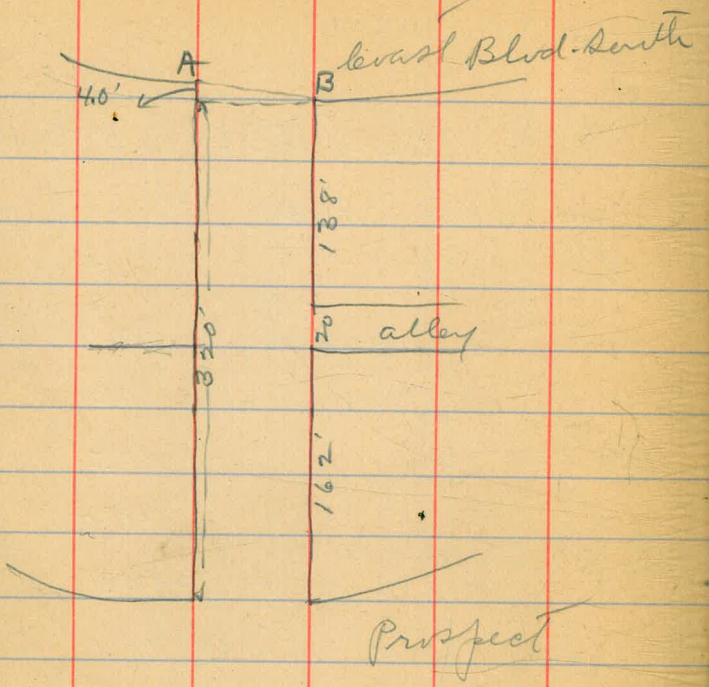 A
B
Coast Blvd. South
4.0'
138'
20'
alley
320'
162'
Prospect